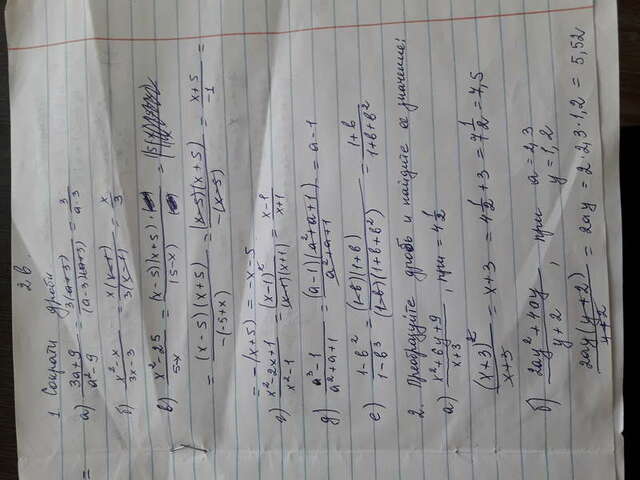 2 в.
1. Сократи дроби
а) (3a+9)/(a²-9) = 3(a+3)/((a-3)(a+3)) = 3/(a-3)
б) (x²-x)/(3x-3) = x(x-1)/(3(x-1)) = x/3
в) (x²-25)/(5-x) = (x-5)(x+5)/(5-x) =
= (x-5)(x+5)/(-(-5+x)) = (x-5)(x+5)/(-(x-5)) = (x+5)/(-1) =
= -(x+5) = -x-5
г) (x²-2x+1)/(x²-1) = (x-1)²/((x-1)(x+1)) = (x-1)/(x+1)
д) (a³-1)/(a²+a+1) = (a-1)(a²+a+1)/(a²+a+1) = a-1
е) (1-b²)/(1-b³) = (1-b)(1+b)/((1-b)(1+b+b²)) = (1+b)/(1+b+b²)
2. Преобразуйте дробь и найдите ее значение:
а) (x²+6y+9)/(x+3), при = 4 1/2
(x+3)²/(x+3) = x+3 = 4 1/2 + 3 = 7 1/2 = 7,5
б) (2ay²+4ay)/(y+2), при a = 2,3
y = 1,2
2ay(y+2)/(y+2) = 2ay = 2·2,3·1,2 = 5,52